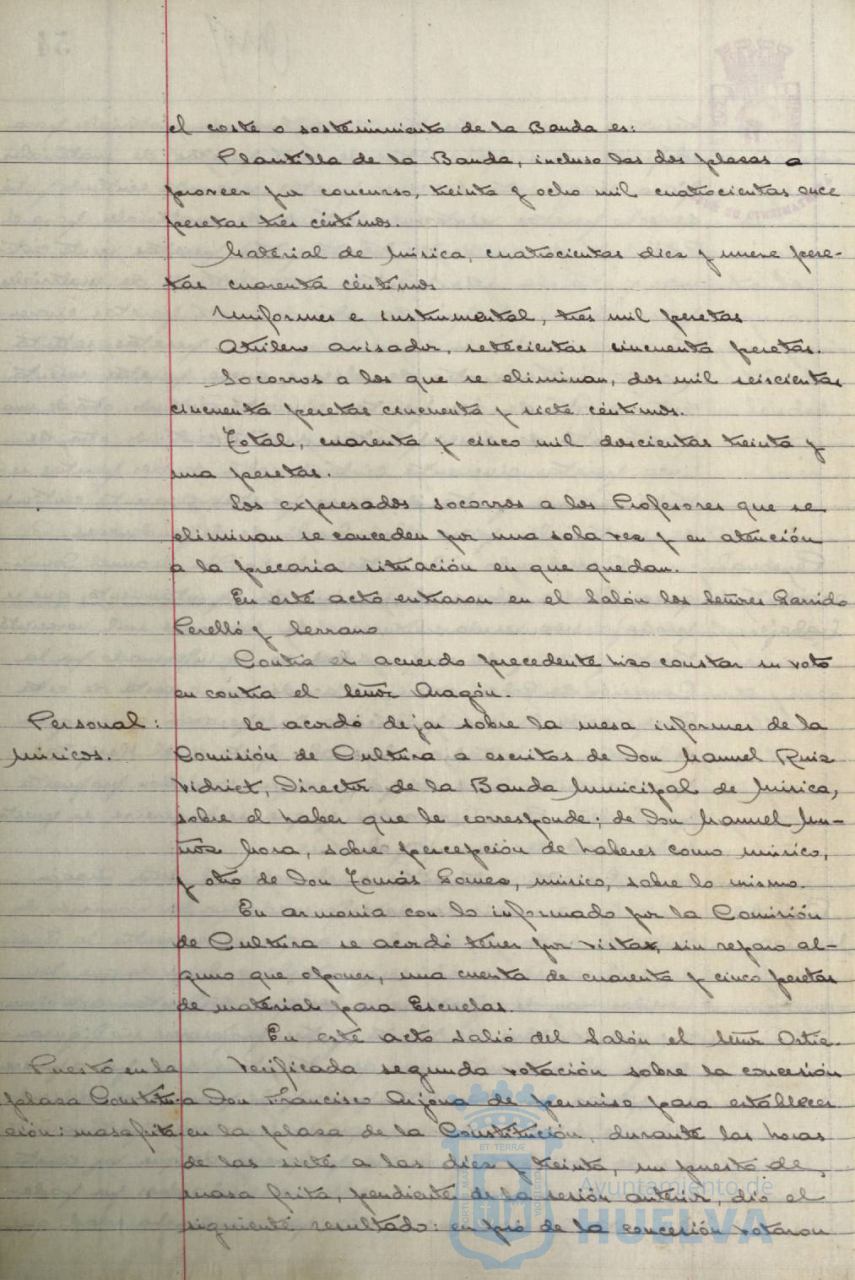 el coste o sostenimiento de la Banda es:
Plantilla de la Banda, incluso las dos plazas a
proveer por concurso, treinta y ocho mil cuatrocientas once
pesetas tres céntimos.
Material de Música, cuatrocientas diez y nueve pese-
tas cuarenta céntimos
Uniformes e instrumental, tres mil pesetas
Atrilero avisador, setecientas cincuenta pesetas.
Socorros a los que se eliminan, dos mil seiscientas
cincuenta pesetas cincuenta y siete céntimos.
Total, cuarenta y cinco mil doscientas treinta y
una pesetas.
Los expresados socorros a los Profesores que se
eliminan se conceden por una sola vez y en atención
a la precaria situación en que quedan.
En este acto entraron en el Salón los Señores Garrido
Perelló y Serrano
Contra el acuerdo precedente hizo constar su voto
en contra el Señor Aragón.
Personal:
músicos.
Se acordó dejar sobre la mesa informes de la
Comisión de Cultura a escritos de Don Manuel Ruiz
Vidriet, Director de la Banda Municipal de Música,
sobre el haber que le corresponde; de Don Manuel
sobre percepción de haberes como músico,
y otro de Don Tomás Gomez, músico, sobre lo mismo.
En armonia con lo informado por la Comisión
de Cultura se acordó tener por vista, sin reparo al-
guno que oponer, una cuenta de cuarenta y cinco pesetas
de material para Escuelas.
En este acto salió del Salón el Señor Ortiz.
Puesto en la
plaza Constitu-
ción: masa frita
Verificada segunda votación sobre la concesión
a Don Francisco Arjona de permiso para establecer
en la plaza de la Constitución, durante las horas
de las siete a las diez y treinta, un puesto de
masa frita, pendiente de la sesión anterior, dió el
siguiente resultado: en pró de la concesión votaron
Ayuntamiento de
HUELVA